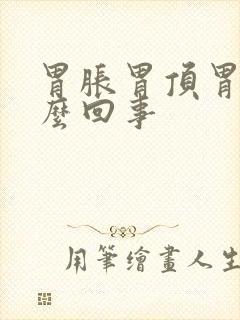 胃脹胃頂胃
麼回事
用筆繪畫人生